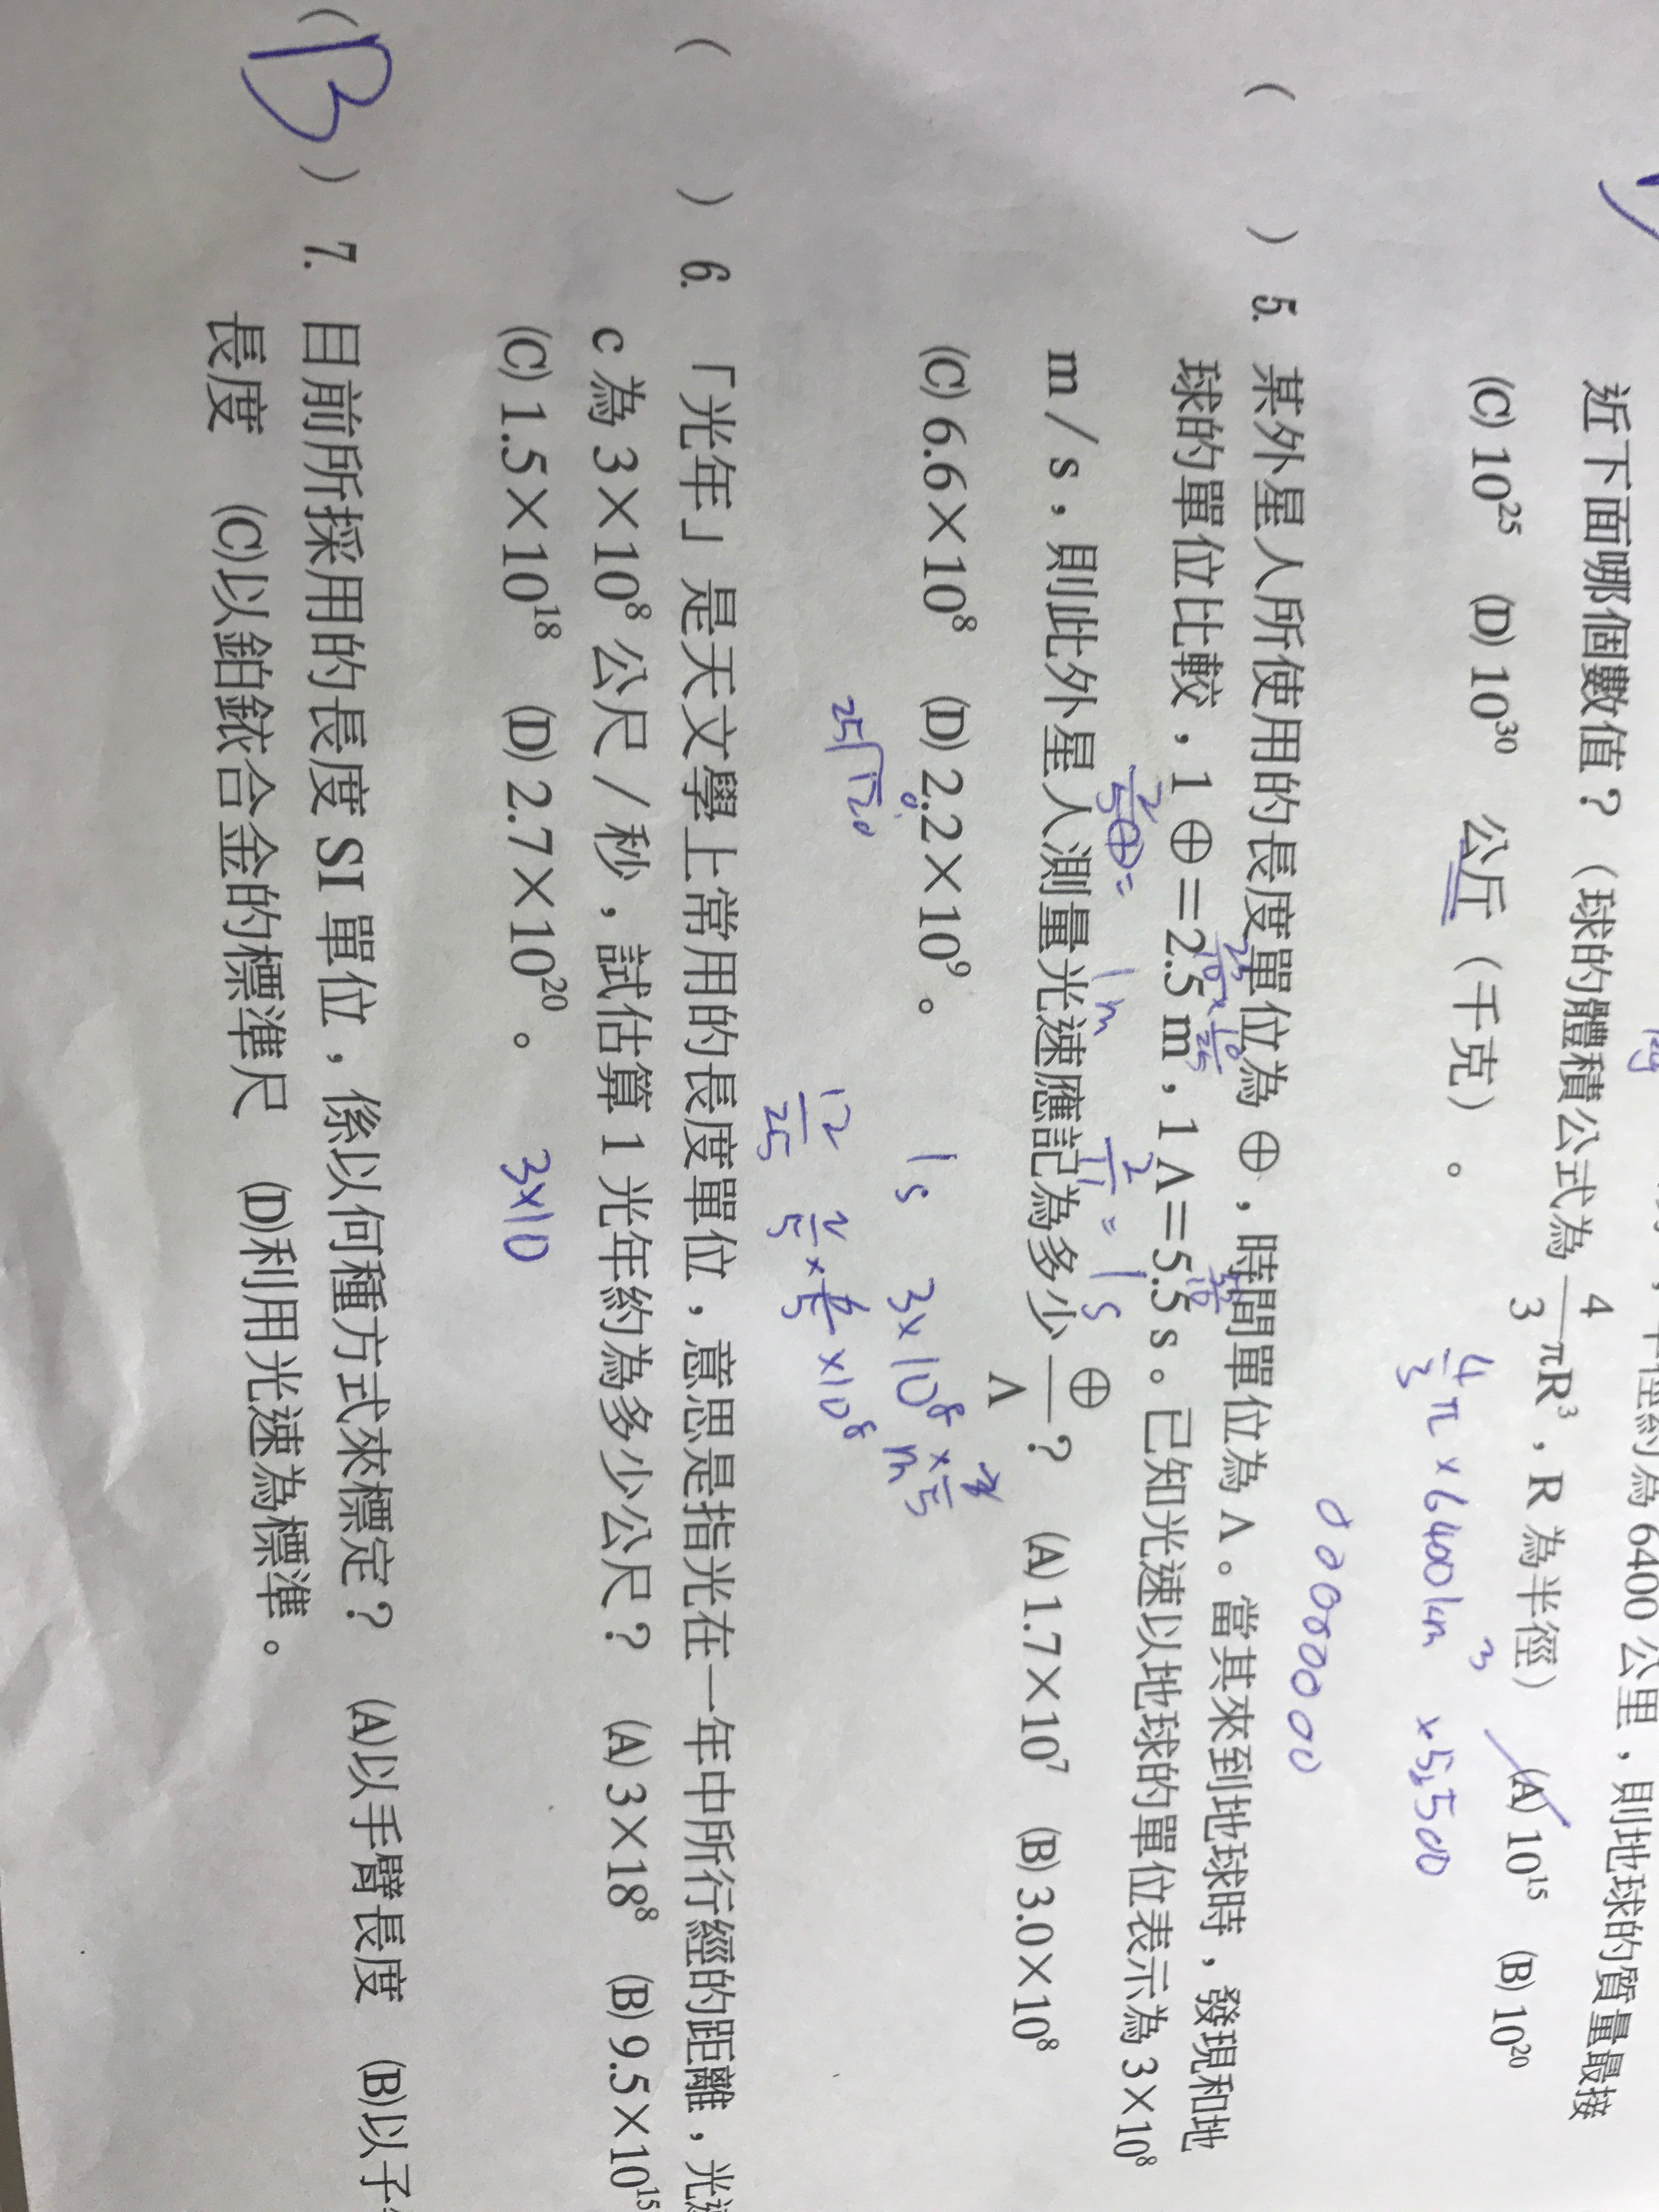 半徑約為 6400 公里，則地球的質量最接
近下面哪個數值？（球的體積公式為 4/3 πR³，R 為半徑） (A) 10¹⁵ (B) 10²⁰
(C) 10²⁵ (D) 10³⁰ 公斤（千克）。
4/3 π × 6400km ³ × 5.500
00000000
( ) 5. 某外星人所使用的長度單位為 ⊕，時間單位為 Λ。當其來到地球時，發現和地
25/10 × 10/25
球的單位比較，1 ⊕＝2.5 m，1 Λ＝5.5 s。已知光速以地球的單位表示為 3×10⁸
2/5 ⊕ = 1m 2/11 = 1s
m／s，則此外星人測量光速應記為多少 ⊕/Λ？ (A) 1.7×10⁷ (B) 3.0×10⁸
(C) 6.6×10⁸ (D) 2.2×10⁹。
1s 3×10⁸ m
25 120
12/25 2/5 × 6/5 ×10⁸
( ) 6. 「光年」是天文學上常用的長度單位，意思是指光在一年中所行經的距離，光
c 為 3×10⁸ 公尺／秒，試估算 1 光年約為多少公尺？ (A) 3×18⁸ (B) 9.5×10¹⁵
(C) 1.5×10¹⁸ (D) 2.7×10²⁰。 3×10
(B) 7. 目前所採用的長度 SI 單位，係以何種方式來標定？ (A)以手臂長度 (B)以子
長度 (C)以鉑銥合金的標準尺 (D)利用光速為標準。